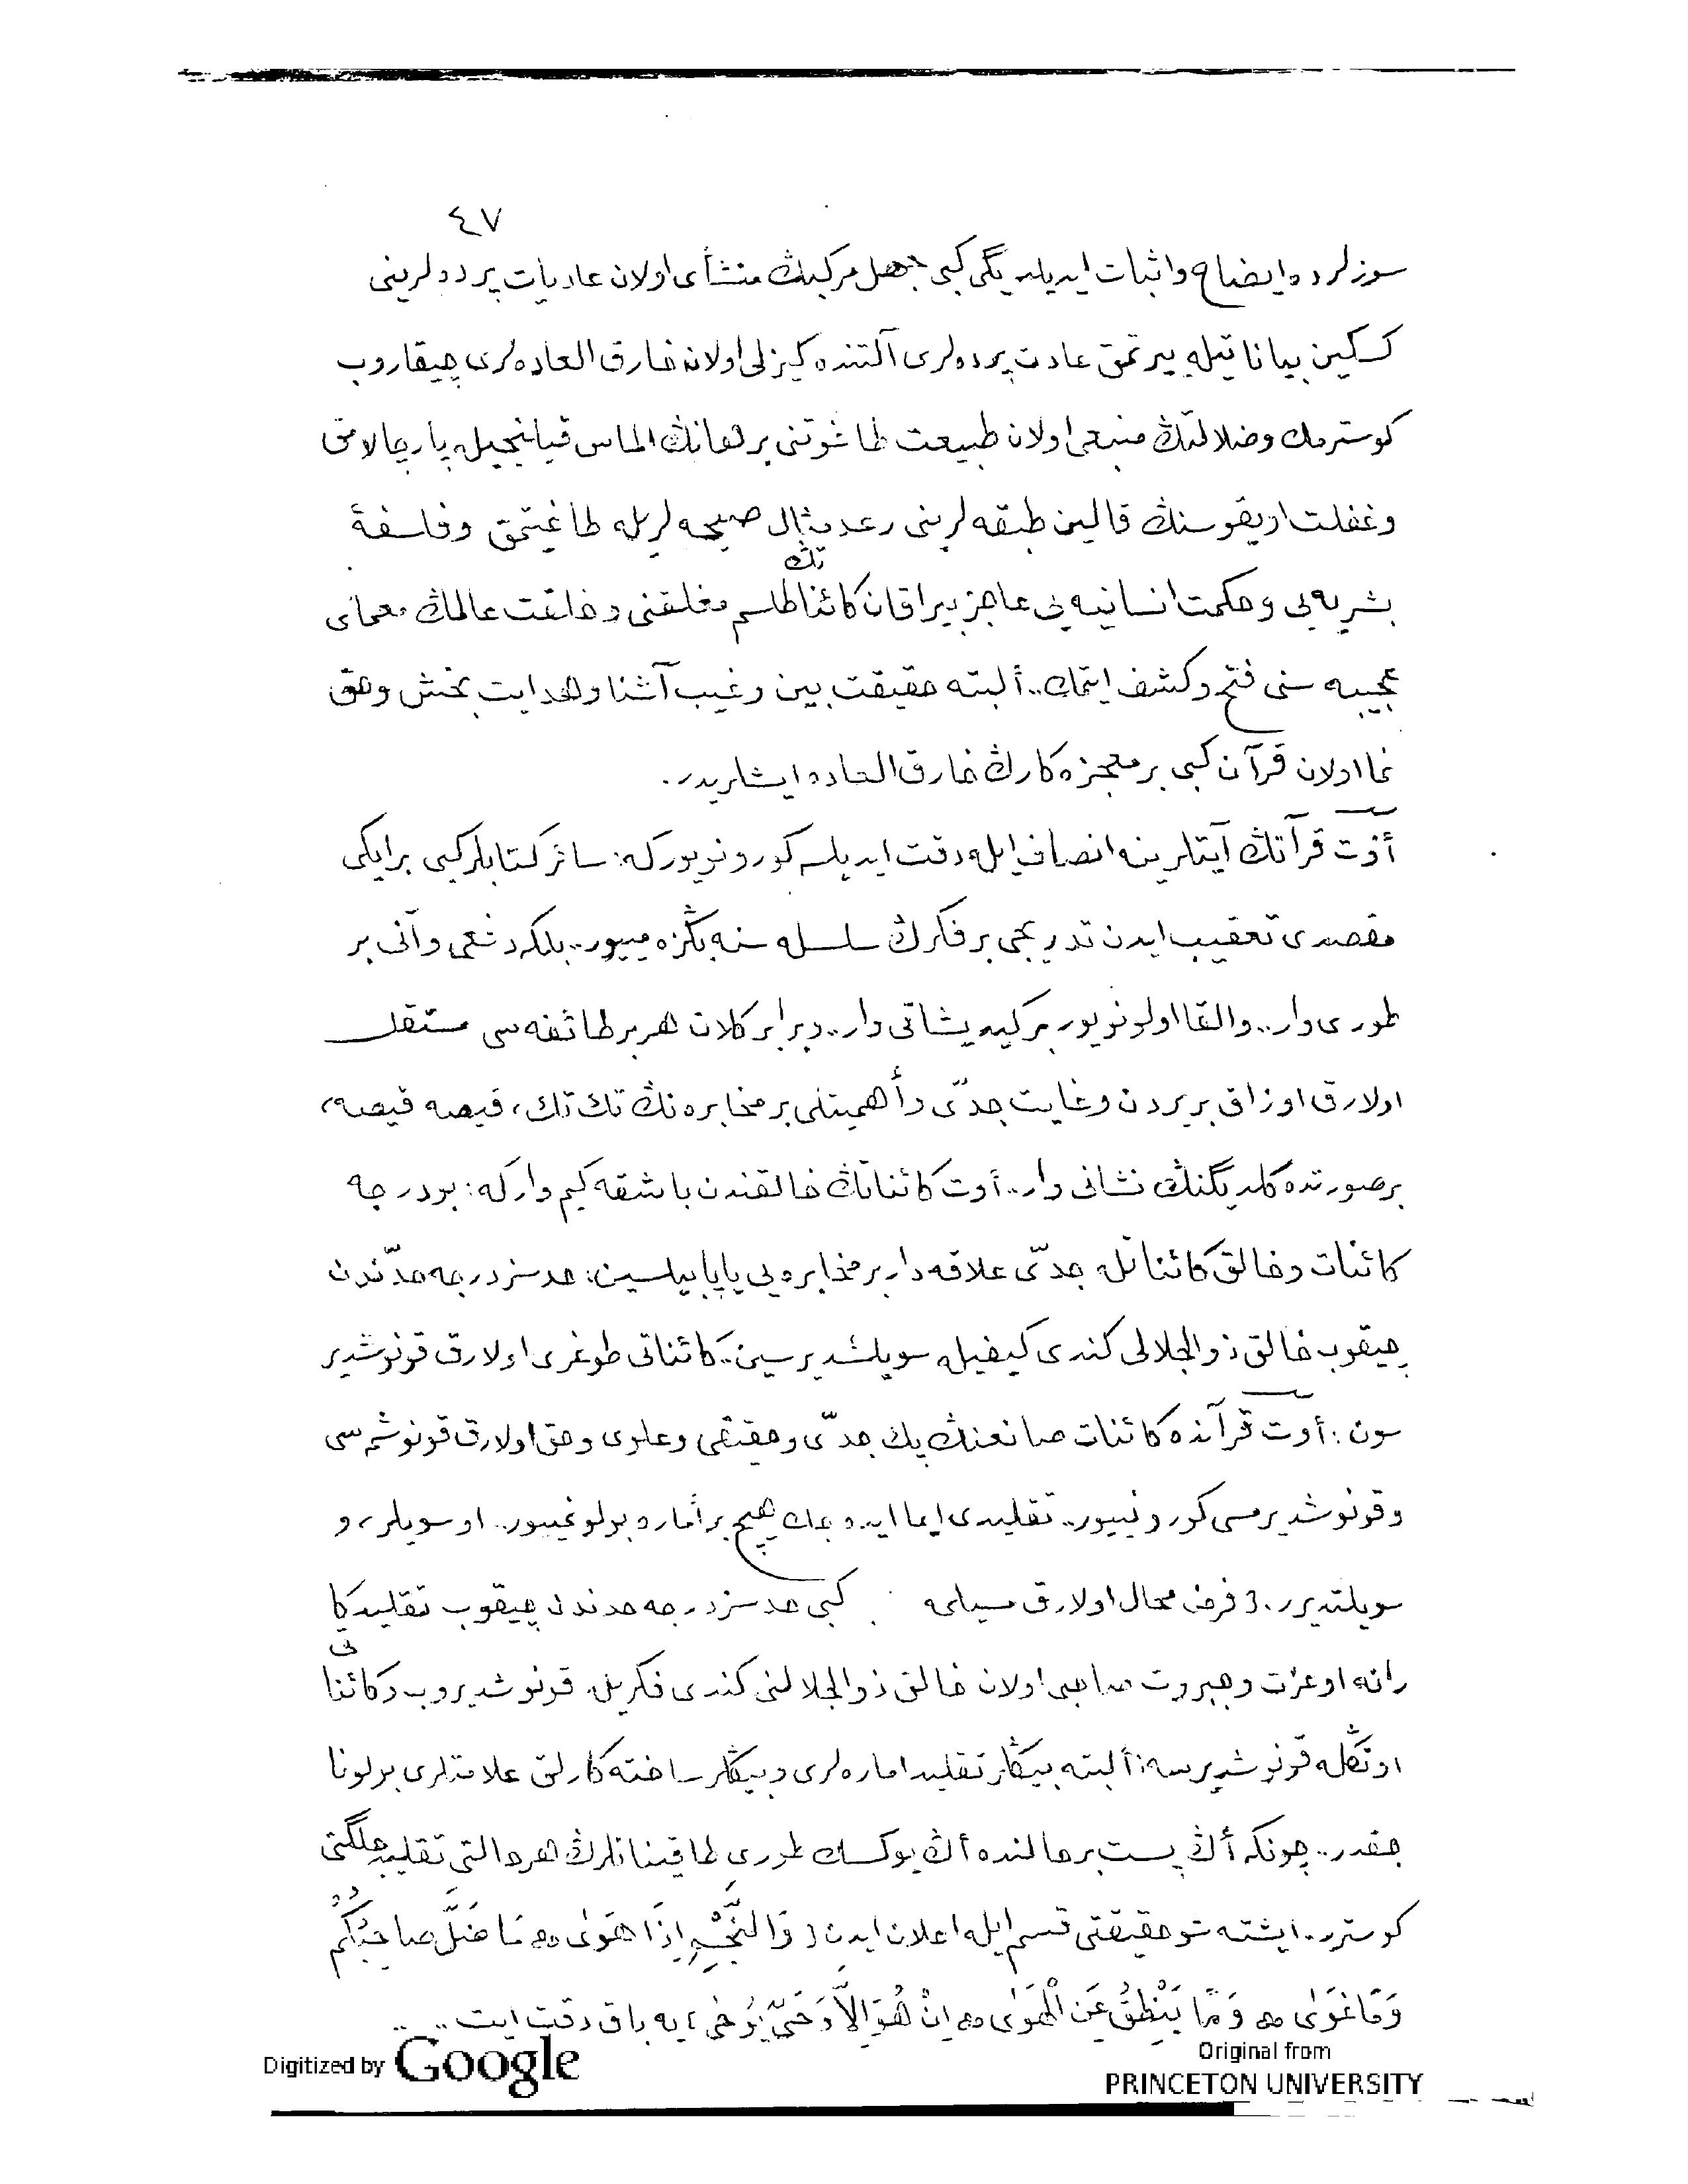 ٤٧
سوزلرده ايضاح واثبات ايديلديگى كبى جهل مركبڭ منشأى اولان عاديات پرده لرينى
كسكين بياناتيله ييرتمق عادت پرده لرى آلتنده كيزلى اولان خارق العاده لرى چيقاروب
كوسترمك وضلالتڭ منبعى اولان طبيعت طاغوتنى برهانڭ الماس قيلنجيله پارچالامق
وغفلت اويقوسنڭ قالين طبقه لرينى رعدمثال صيحه لريله طاغيتمق وفلسفۀ
بشريه يى وحكمت انسانيه يى عاجز بيراقان كائناتڭ طلسم مغلقنى وخلقت عالمڭ معماى
عجيبه سنى فتح وكشف ايتمك.. ألبته حقيقت بين وغيب آشنا وهدايت بخش وحق
نما اولان قرآن كبى بر معجزه كارڭ خارق العاده ايشلريدر.
أوت قرآنڭ آيتلرينه انصاف ايله دقت ايديلسه كورونويوركه: سائر كتابلر كبى بر ايكى
مقصدى تعقيب ايدن تدريجى بر فكرڭ سلسله سنه بڭزه ميور.. بلكه دفعى وآنى بر
طورى وار.. والقا اولونويور بر كيديشاتى وار.. وبرابر كلان هر بر طائفه سى مستقل
اولارق اوزاق بر يردن وغايت جدّى وأهميتلى بر مخابره نڭ تك تك، قيصه قيصه،
بر صورتده كلديگنڭ نشانى وار.. أوت كائناتڭ خالقندن باشقه كيم واركه: بو درجه
كائنات وخالق كائناتله جدّى علاقه دار بر مخابره يى ياپابيلسين: حدسز درجه حدّندن
چيقوب خالق ذوالجلالى كندى كيفيله سويلشديرسين.. كائناتى طوغرى اولارق قونوشدير
سون: أوت قرآنده كائنات صانعنڭ پك جدّى وحقيقى وعلوى وحق اولارق قونوشمه سى
وقونوشديرمسى كورونييور.. تقليدى ايما ايده جك هيچ بر أماره بولونميور.. او سويلر، و
سويلتديرر. فرض محال اولارق مسيلمه كبى حدسز درجه حدندن چيقوب تقليدكا
رانه او عزت وجبروت صاحبى اولان خالق ذوالجلالنى كندى فكريله قونوشديروب وكائناتى
اونڭله قونوشديرسه: ألبته بيڭلر تقليد اماره لرى وبيڭلر ساخته كارلق علامتلرى بولونا
جقدر.. چونكه أڭ پست بر حالنده أڭ يوكسك طورى طاقينانلرڭ هر حالتى تقليدجيلگنى
كوسترر. ايشته شو حقيقتى قسم ايله اعلان ايدن: وَالنَّجْمِ اِذَا هَوٰى مَا ضَلَّ صَاحِبُكُمْ
وَمَا غَوٰى وَمَا يَنْطِقُ عَنِ الْهَوٰى اِنْ هُوَ اِلَّا وَحْيٌ يُوحٰى يه باق دقت ايت..
Digitized by Google
Original from
PRINCETON UNIVERSITY